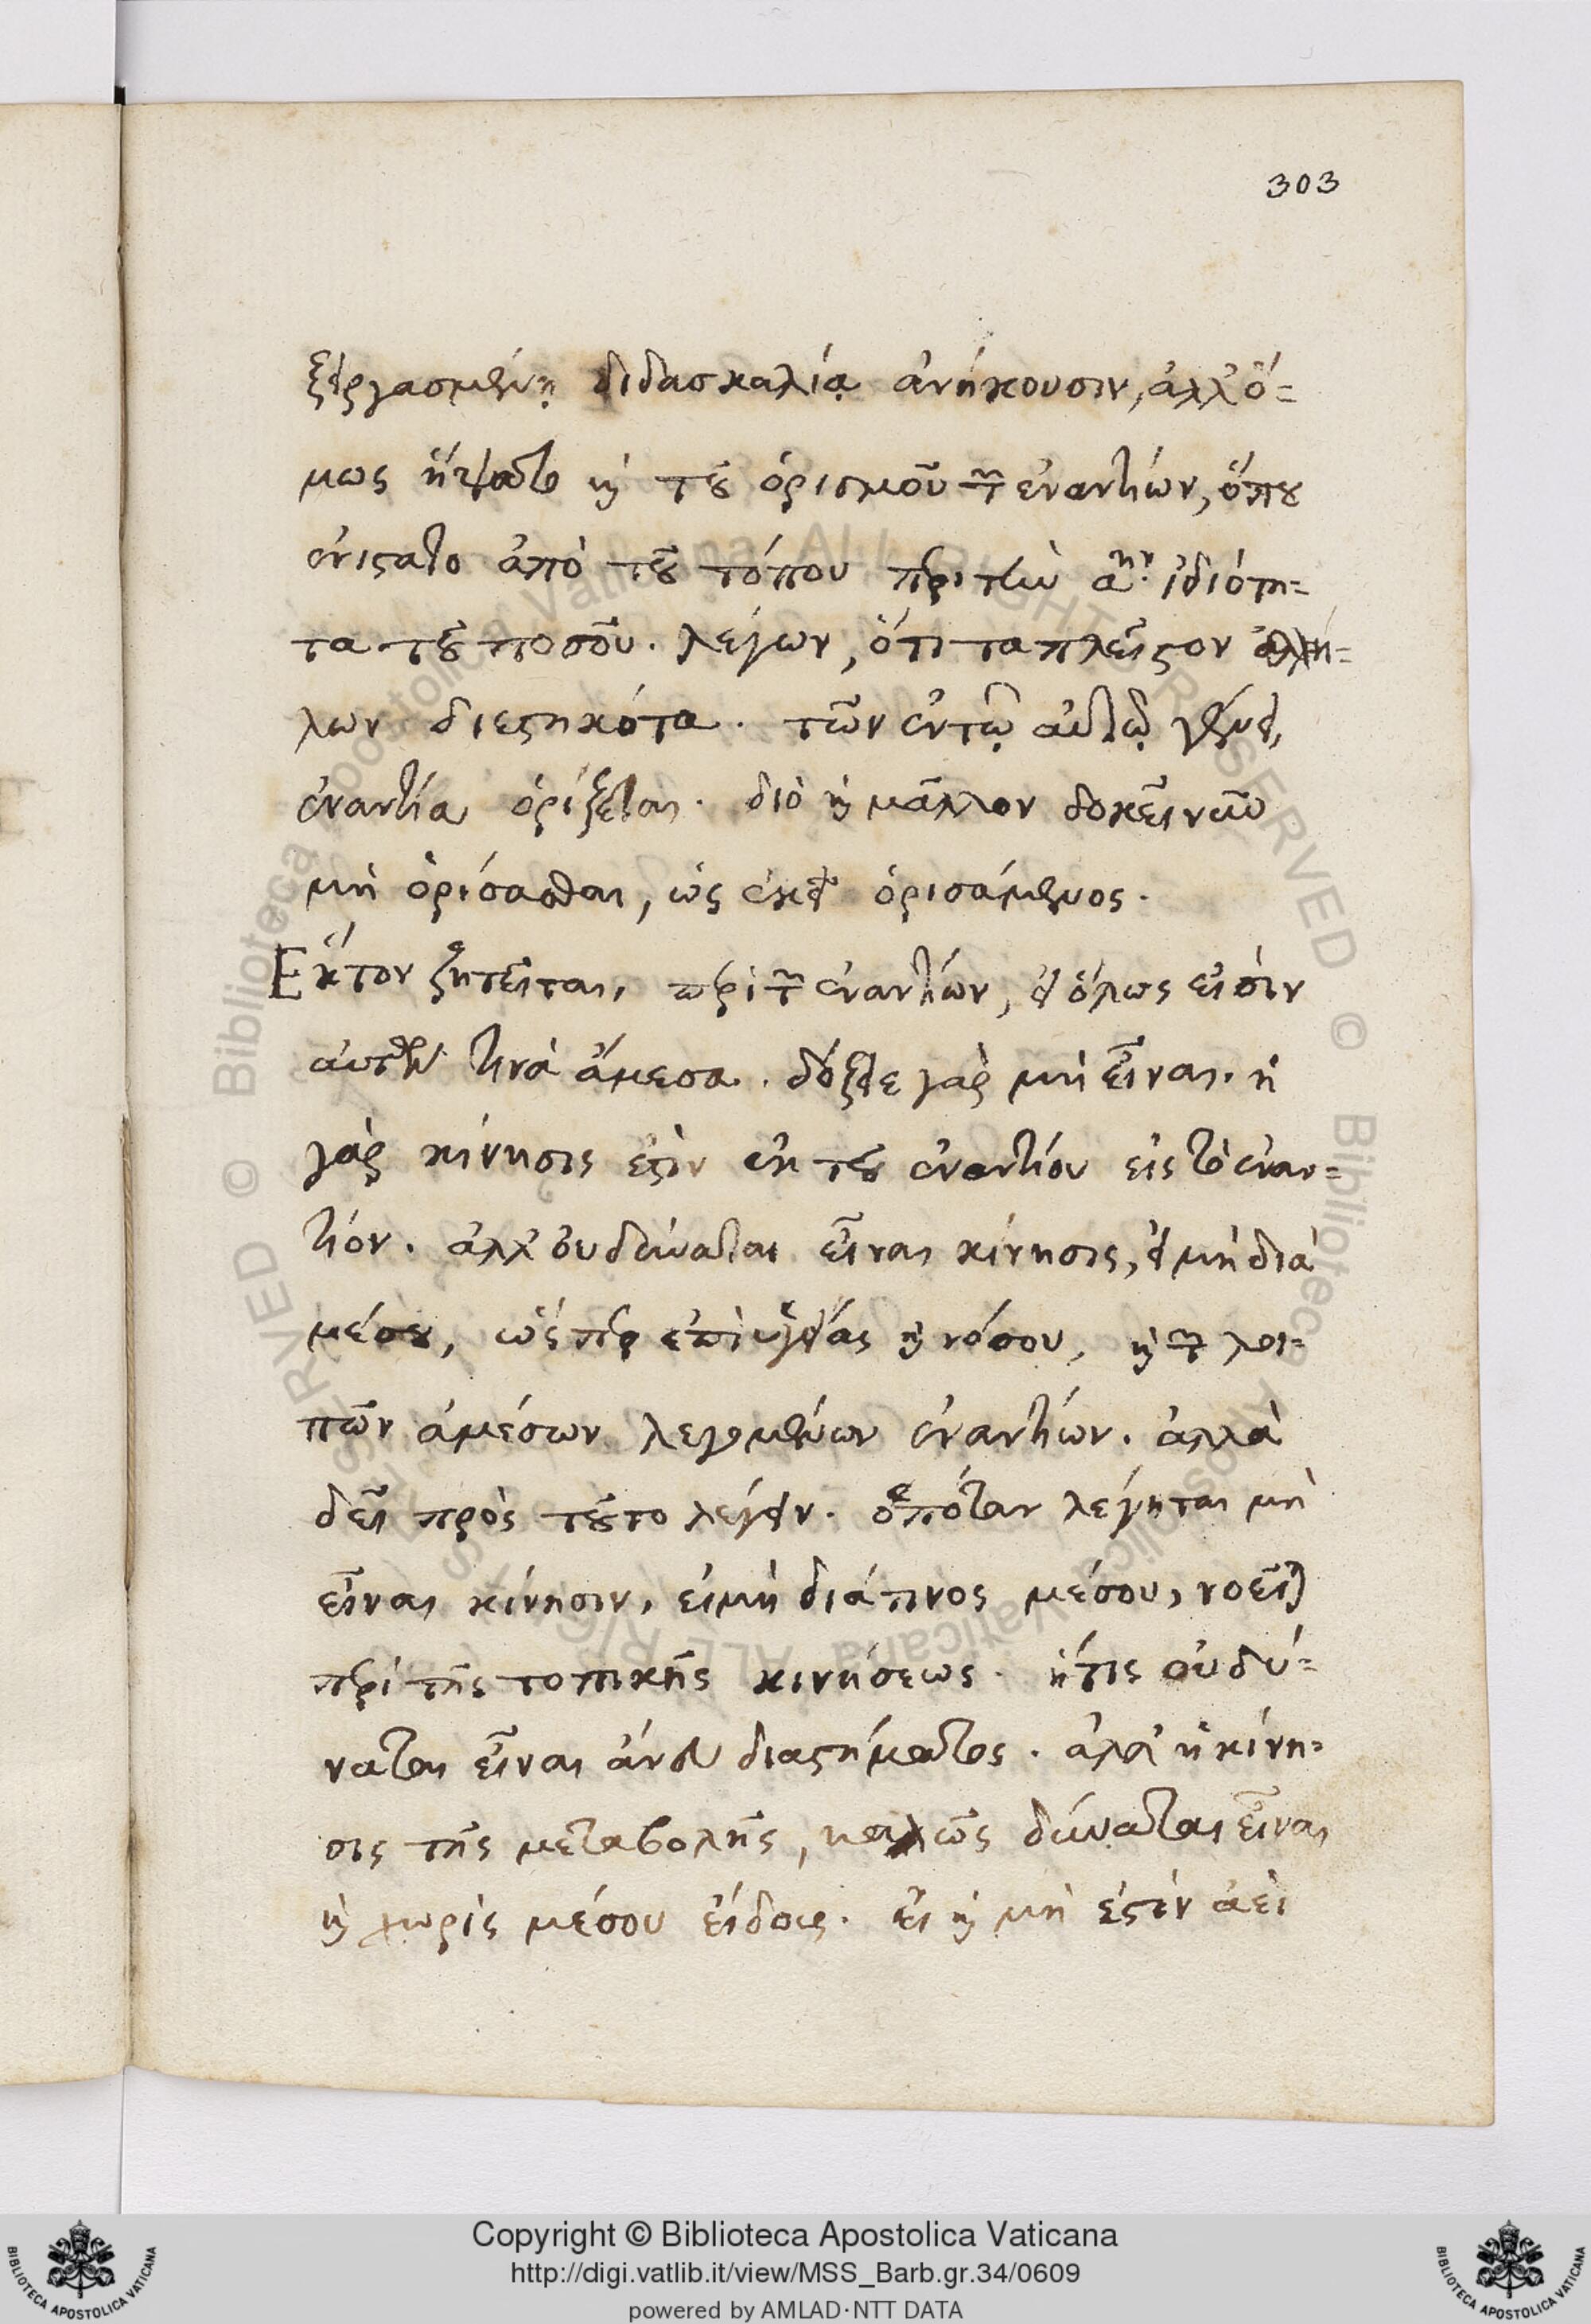 303
ξειργασμένη διδασκαλίᾳ ἀνήκουσιν, ἀλλ' ὅ=
μως ἥψατο καὶ τοῦ ὁρισμοῦ τῶν ἐναντίων, ὅπου
ἐνίστατο ἀπὸ τοῦ τόπου περὶ τὴν αην. ἰδιότη=
τα τοῦ ποσοῦ. λέγων, ὅτι τὰ πλεῖστον ἀλλή=
λων διεστηκότα. τῶν ἐν τῷ αὐτῷ γένει,
ἐναντία ὁρίζεται. διὸ καὶ μᾶλλον δοκεῖ νῦν
μὴ ὁρίσασθαι, ὡς ἐκεῖ ὁρισάμενος.
Ἕκτον ζητεῖται, περὶ τῶν ἐναντίων, εἰ ὅλως εἰσὶν
αὐτῶν τινὰ ἄμεσα. δόξειε γὰρ μὴ εἶναι. ἡ
γὰρ κίνησις ἐστὶν ἐκ τοῦ ἐναντίου εἰς τὸ ἐναν=
τίον. ἀλλ' οὐ δύναται εἶναι κίνησις, εἰ μὴ διὰ
μέσου, ὥσπερ ἐπὶ ὑγείας καὶ νόσου, καὶ τῶν λοι=
πῶν ἀμέσων λεγομένων ἐναντίων. ἀλλὰ
δεῖ πρὸς τοῦτο λέγειν. ὁπόταν λέγηται μὴ
εἶναι κίνησιν, εἰμὴ διά τινος μέσου, νοεῖται
περὶ τῆς τοπικῆς κινήσεως. ἥτις οὐ δύ=
ναται εἶναι ἄνευ διαστήματος. ἀλλ' ἡ κίνη=
σις τῆς μεταβολῆς, καλῶς δύναται εἶναι
καὶ χωρὶς μέσου εἴδους. εἰ καὶ μὴ ἐστὶν ἀεὶ
Copyright © Biblioteca Apostolica Vaticana
http://digi.vatlib.it/view/MSS_Barb.gr.34/0609
powered by AMLAD·NTT DATA